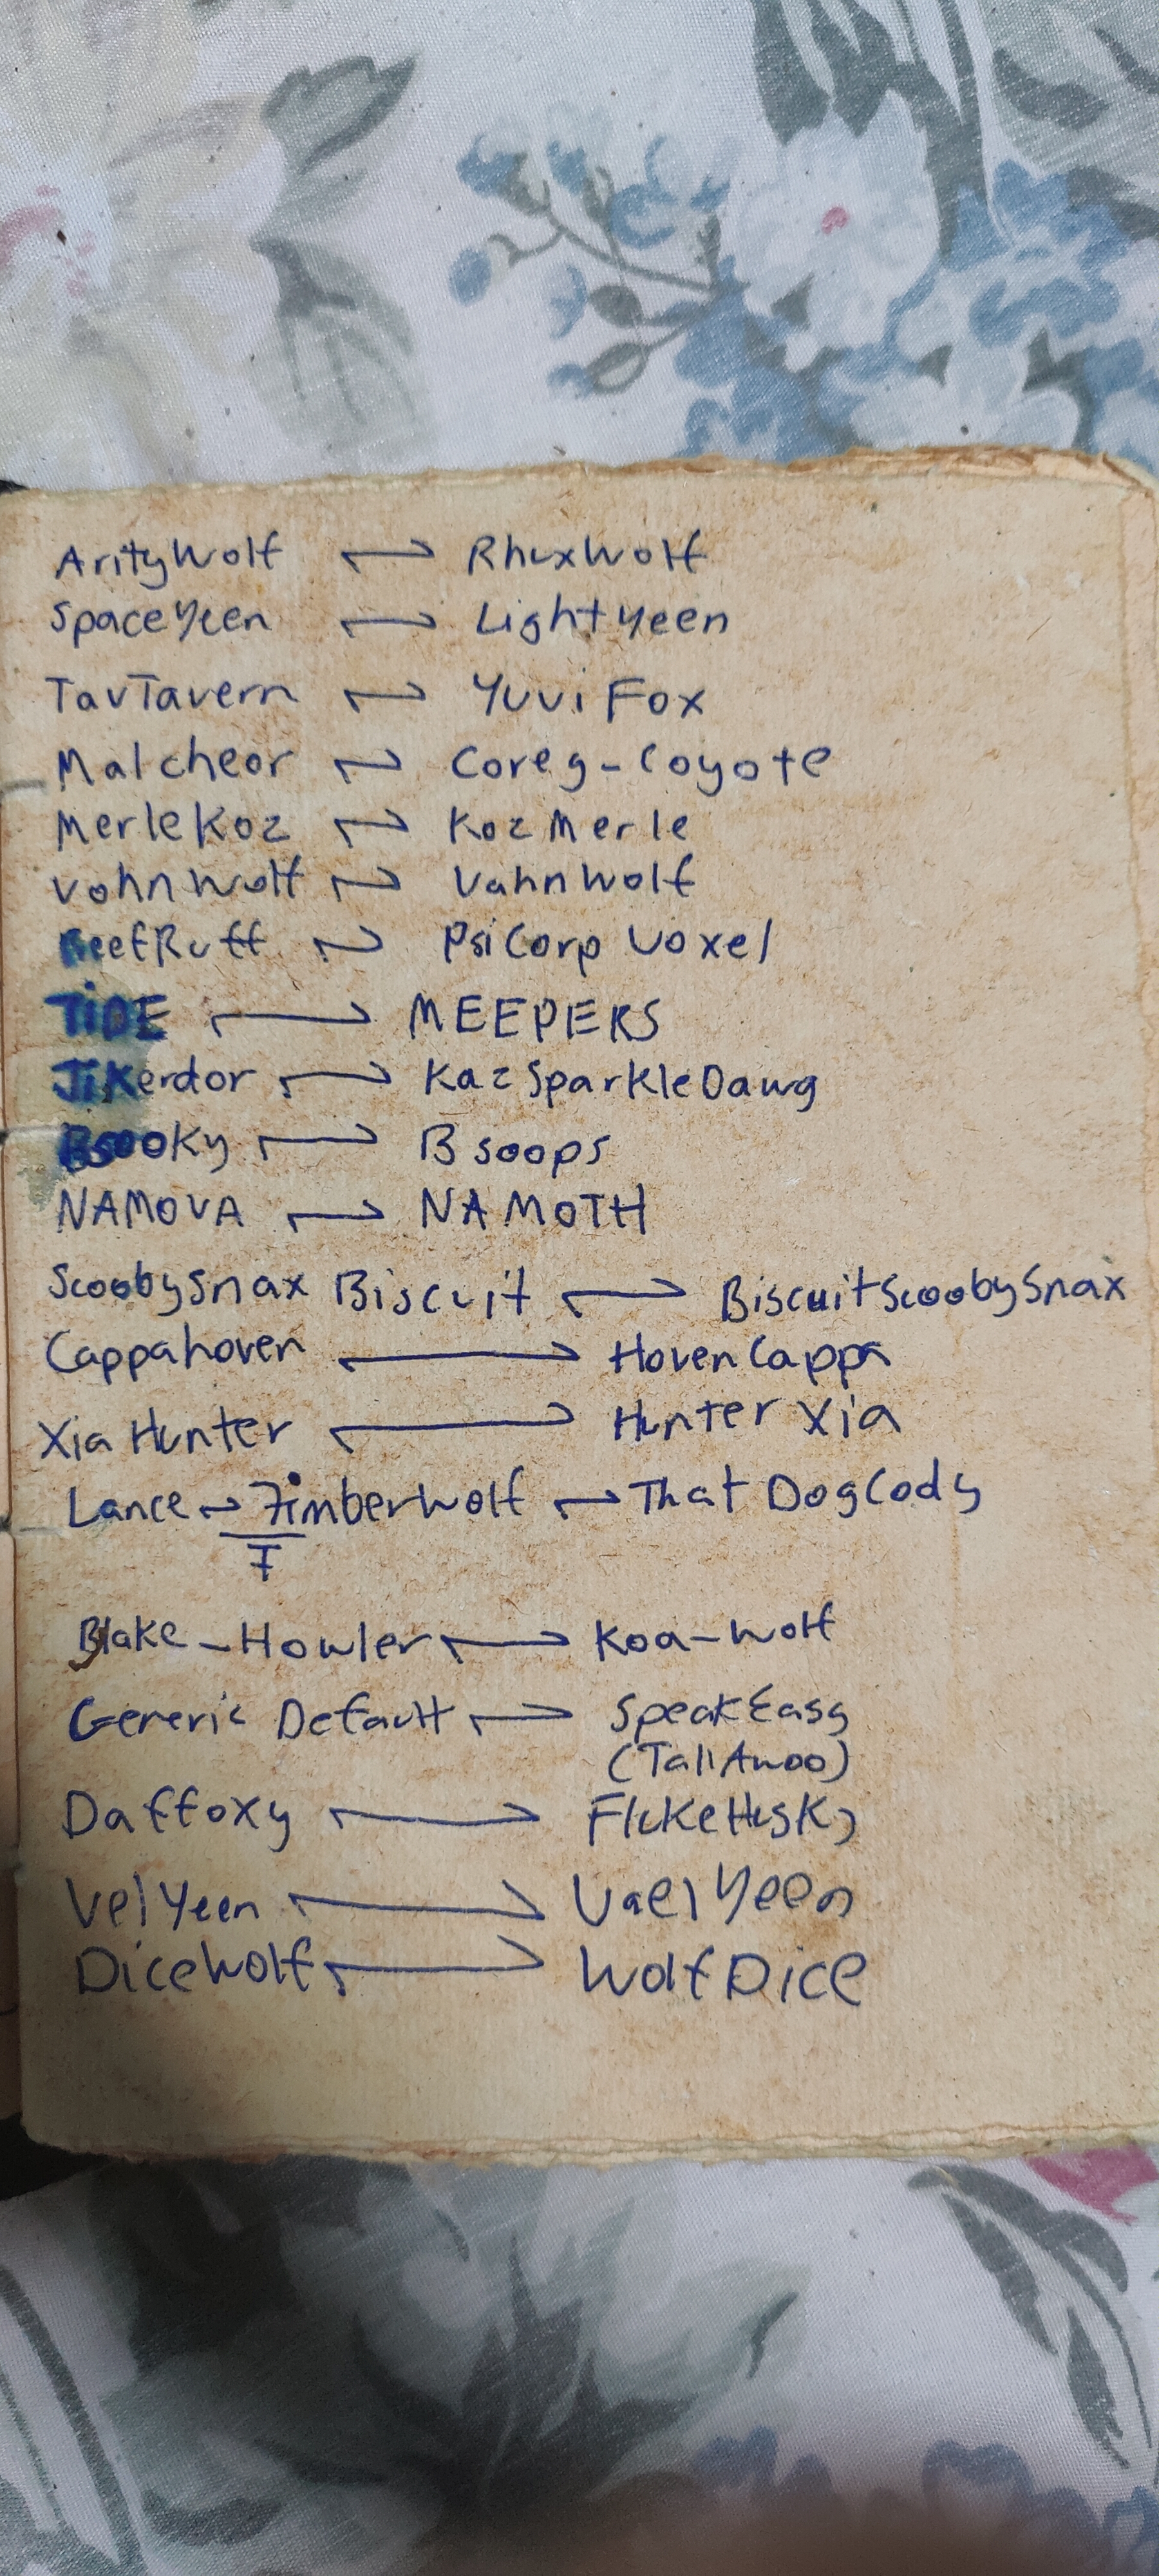 ArityWolf ↔ RhuxWolf
SpaceYeen ↔ LightYeen
TavTavern ↔ YuviFox
Malcheor ↔ Coreg-Coyote
MerleKoz ↔ KozMerle
VohnWolf ↔ VahnWolf
BeefRuff ↔ PsiCorp Voxel
TiDE ↔ MEEPERS
JiKerdor ↔ KazSparkleDawg
BsooKy ↔ Bsoops
NAMOVA ↔ NAMOTH
ScoobySnax Biscuit ↔ BiscuitScoobySnax
Cappahoven ↔ HovenCappa
Xia Hunter ↔ Hunter Xia
Lance → TimberWolf ↔ That DogCody
T
Blake-Howler ↔ Koa-Wolf
Generic Default ↔ SpeakEasy
(TallAwoo)
Daffoxy ↔ FlukeHusky
VelYeen ↔ VaelYeen
DiceWolf ↔ WolfDice